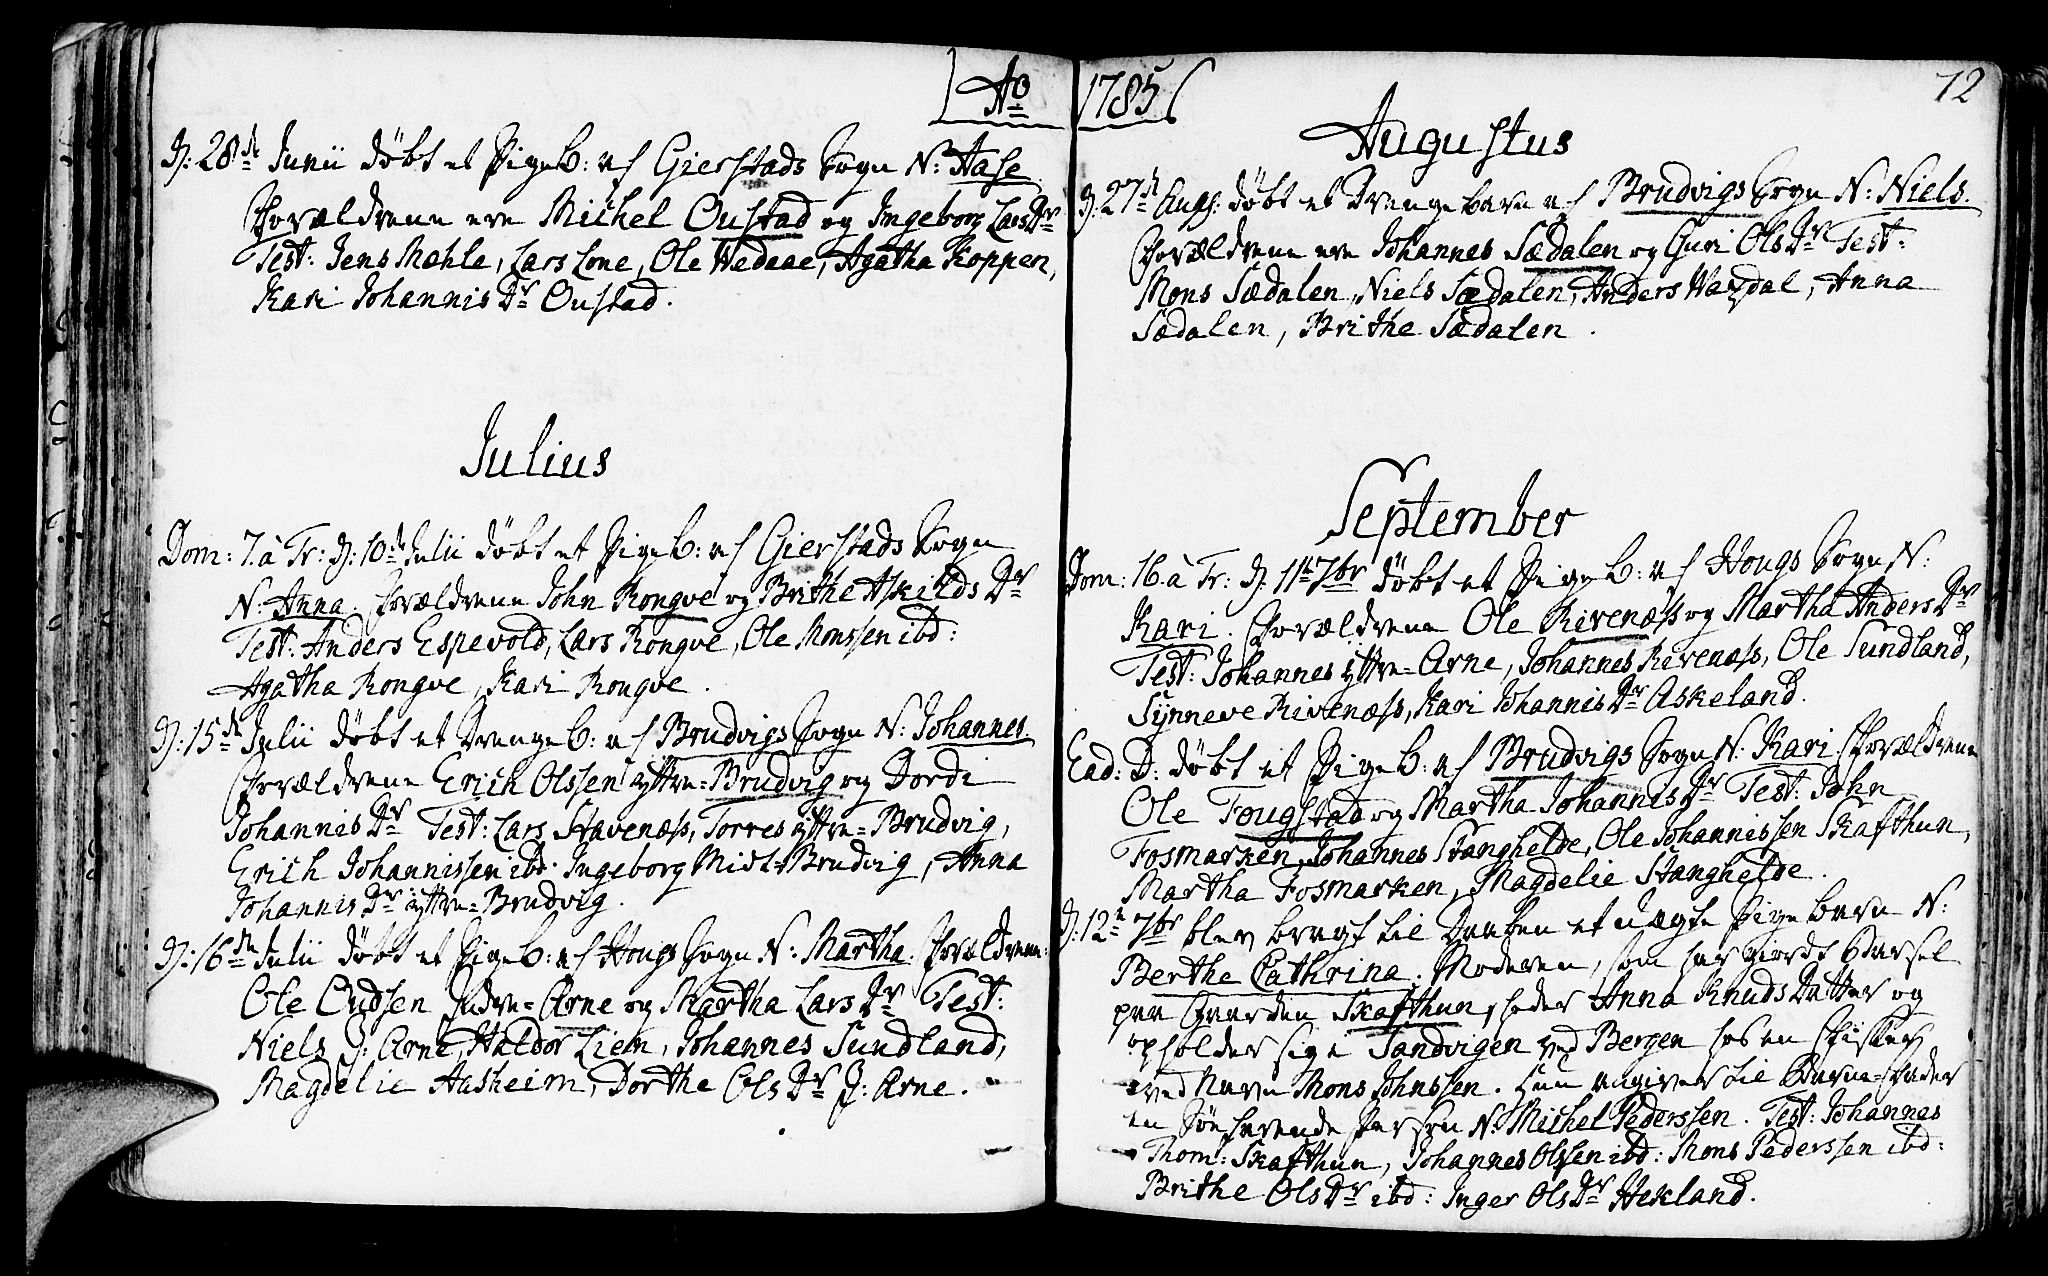 Ao 1785
D: 28de Junii døbt et Pigeb: af Gierstads Sogn N: Aase
Forældrene ere Michel Oustad og Ingeborg LarsDr
Test: Jens Mæhle, Lars Lone, Ole Hedaae, Agatha Koppen,
Kari JohannisDr Oustad.
Julius
Dom: 7. à Tr: D: 10de Julii døbt et Pigeb: af Gierstads Sogn
N: Anna. Forældrene John Rongve og Brithe AskildsDr
Test: Anders Espevold, Lars Rongve, Ole Monssen ibd:
Agatha Rongve, Kari Rongve.
D: 15de Julii døbt et Drengeb: af Brudvigs Sogn N: Johannes
Forældrene Erich Olssen yttre=Brudvig og Dordi
JohannisDr Test: Lars Stavenæss, Torres yttre=Brudvig,
Erich Johannissen ibd: Ingeborg Midt=Brudvig, Anna
JohannisDr yttre=Brudvig.
D: 16de Julii døbt et Pigeb: af Hougs Sogn N: Martha. Forældrene:
Ole Oudsen Indre=Arne og Martha LarsDr Test:
Niels J: Arne, Haldor Liem, Johannes Sundland,
Magdelie Aasheim, Dorthe OlsDr J: Arne.
72
Augustus
D: 27de Augs: døbt et Drengebarn af Brudvigs Sogn N: Niels.
Forældrene ere Johannes Sædalen og Guri OlsDr Test:
Mons Sædalen, Niels Sædalen, Anders Waxdal, Anna
Sædalen, Brithe Sædalen.
September
Dom: 16. à Tr: D. 11te 7br døbt et Pigeb: af Hougs Sogn N:
Kari. Forældrene Ole Rivenæss og Martha AndersDr
Test: Johannes yttre=Arne, Johannes Rivenæss, Ole Sundland,
Synneve Rivenæss, Kari JohannisDr Askeland.
Ead: D: døbt et Pigeb: af Brudvigs Sogn N: Kari Forældrene
Ole Fougstad og Martha JohannisDr Test: John
Fosmarken, Johannes Stanghelde, Ole Johannissen Skafthun,
Martha Fosmarken, Magdelie Stanghelde.
D: 12te 7br blev bragt til Daaben et uægte Pigebarn N:
Berthe Cathrina. Moderen, som har giordt Barsel
paa Gaarden Skafthun, heder Anna KnudsDatter og
opholder sig i Sandvigen ved Bergen hos en Fisker
ved Navn Mons Johnssen. Hun angiver til Barne=Fader
en Søefarende Person N: Michel Pederssen. Test: Johannes
Thom: Skafthun, Johannes Olssen ibd: Mons Pederssen ibd:
Brithe OlsDr ibd: Inger OlsDr Hekland.